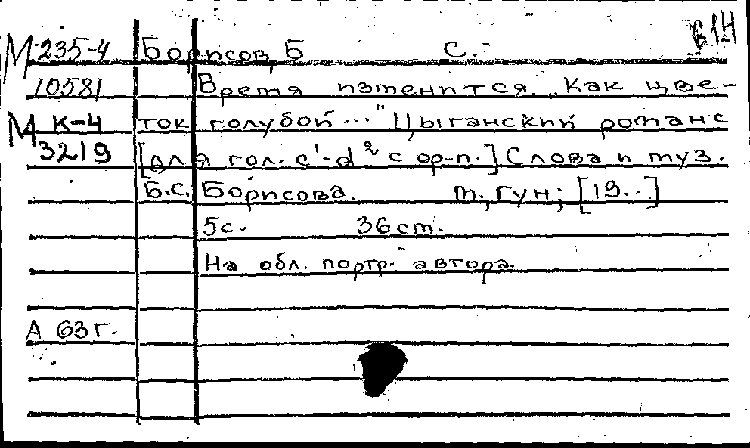 614
М 235-4 Борисов, Б С.
10581 Время изменится. „Как цве-
М К-4 ток голубой..." Цыганский романс
3219 [для гол. c¹-d² с ф-п.] Слова и муз.
Б.С. Борисова. М., Гун; [19..]
5с. 36см.
На обл. портр. автора
А 63г.